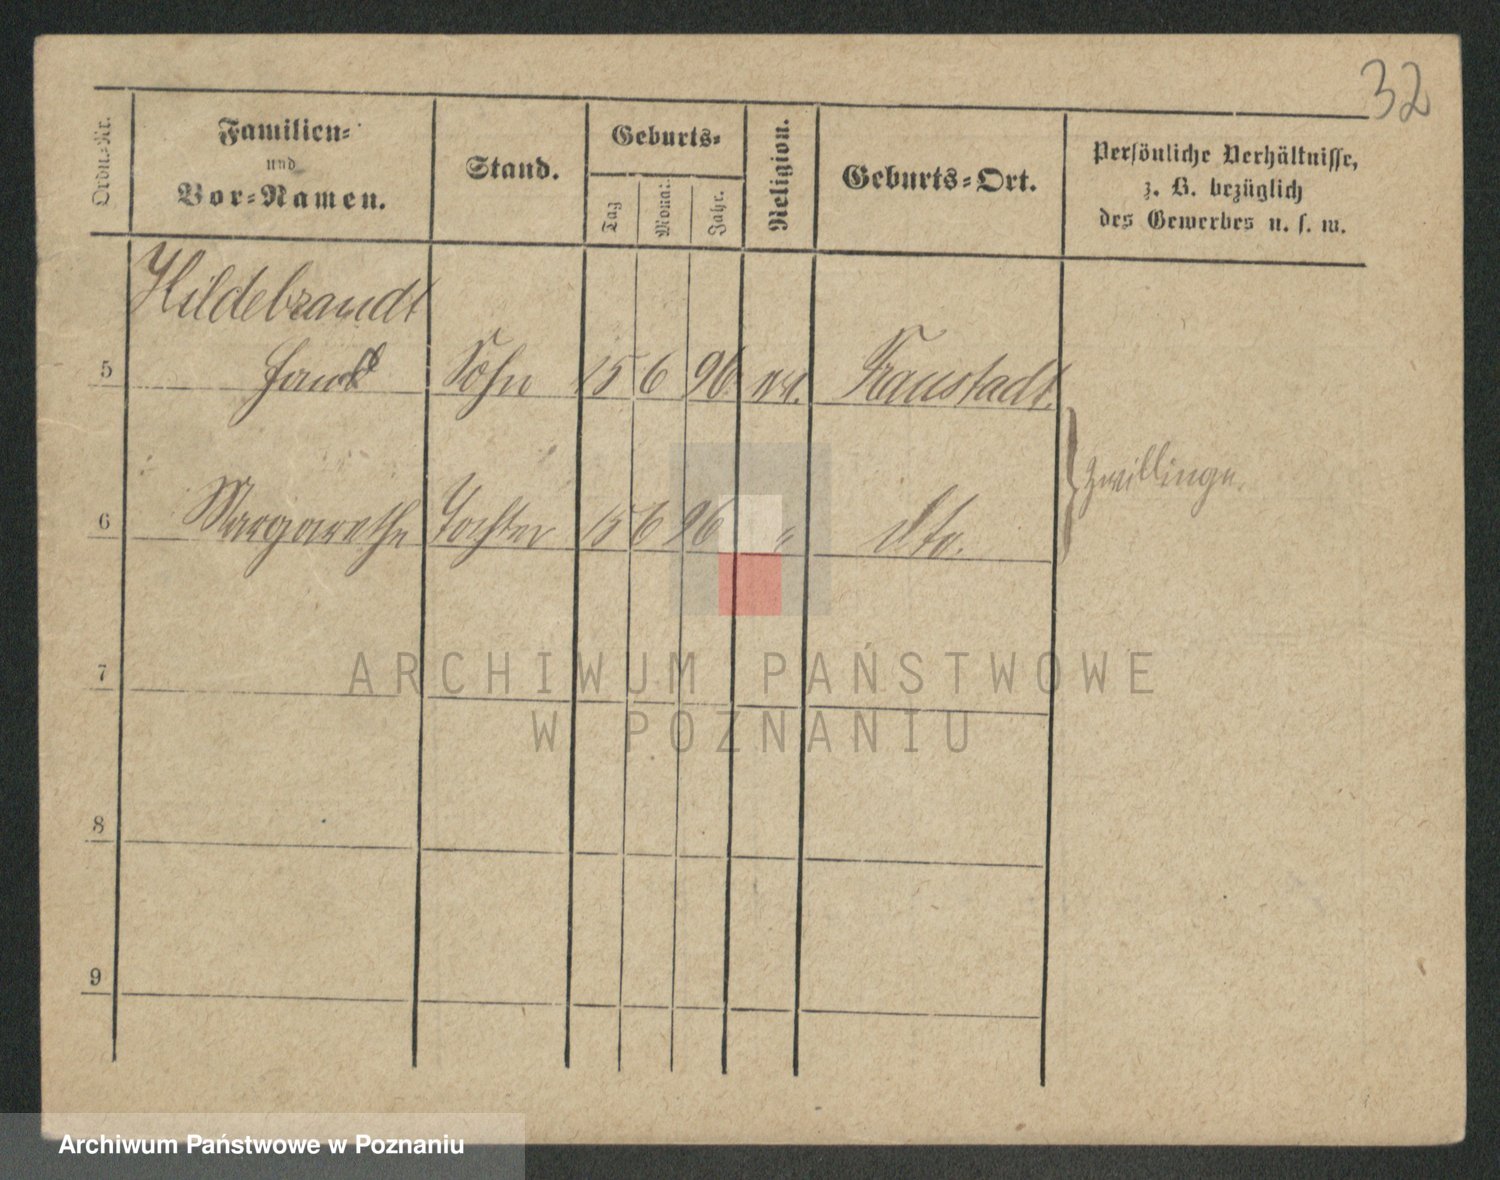 32
Ordn.-Nr.
Familien-
und
Vor-Namen.
Stand.
Geburts-
Tag
Monat.
Jahr.
Religion.
Geburts-Ort.
Persönliche Verhältnisse,
z. B. bezüglich
des Gewerbes u. s. w.
Hildebrandt
5 Sohn 15 6 96 Fraustadt.
6 Margarethe Tochter 15 6 96 " dto.
} Zwillinge.
7
8
9
ARCHIWUM PAŃSTWOWE
W POZNANIU
Archiwum Państwowe w Poznaniu